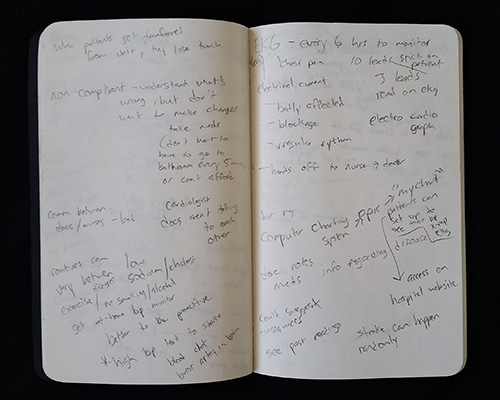 when patients get transferred
from unit, they lose touch
non-compliant - understand what's
wrong, but don't
want to make changes
take meds
(don't want to
have to go to
bathroom every 5 min,
or can't afford
comm between
docs/nurses - bad
cardiologist
docs aren't talking
to each
other
routines can
vary between
low
sodium/cholest
exercise/no smoking/alcohol
get at-home bp monitor
better to be proactive
*high bp lead to stroke
blood clot
burst artery in brain
EKG - every 6 hrs to monitor
chest pain
10 leads
patient
3 leads
read on ekg
electrical current
- badly affected
- blockage
- irregular rythm
electro cardio
graph
- hands off to nurse → doctor
Computer charting
system
epic → "mychart"
patients can
set up to
see
disease
doc notes
meds
info regarding
access on
hospital website
can't suggest
see past readings
stroke can happen
randomly